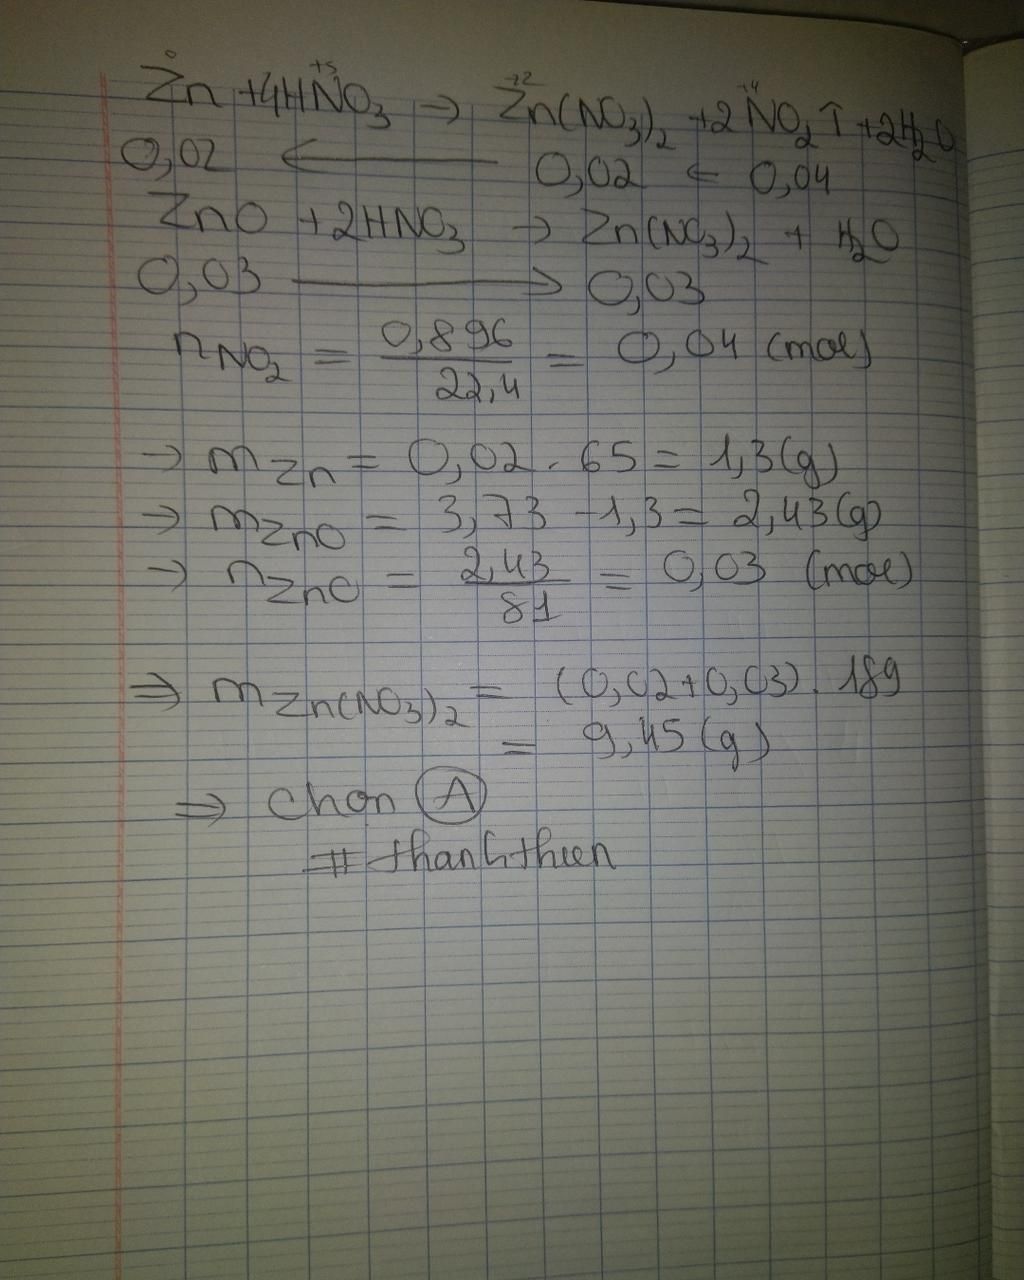 Zn + 4HNO₃ → Zn(NO₃)₂ + 2NO₂↑ + 2H₂O
0,02 ← 0,02 ← 0,04
ZnO + 2HNO₃ → Zn(NO₃)₂ + H₂O
0,03 → 0,03
nNO₂ = 0,896/22,4 = 0,04 (mol)
→ mZn = 0,02 . 65 = 1,3(g)
→ mZnO = 3,73 - 1,3 = 2,43(g)
→ nZnO = 2,43/81 = 0,03 (mol)
⇒ mZn(NO₃)₂ = (0,02+0,03) . 189
= 9,45 (g)
⇒ Chọn A
# thanhthien